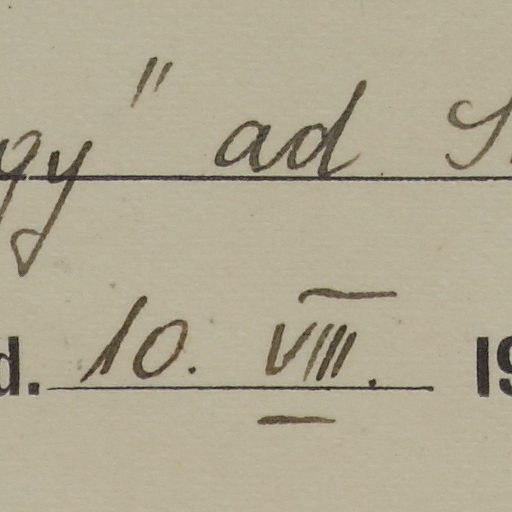 gy" ad S
d. 10. VIII. 19